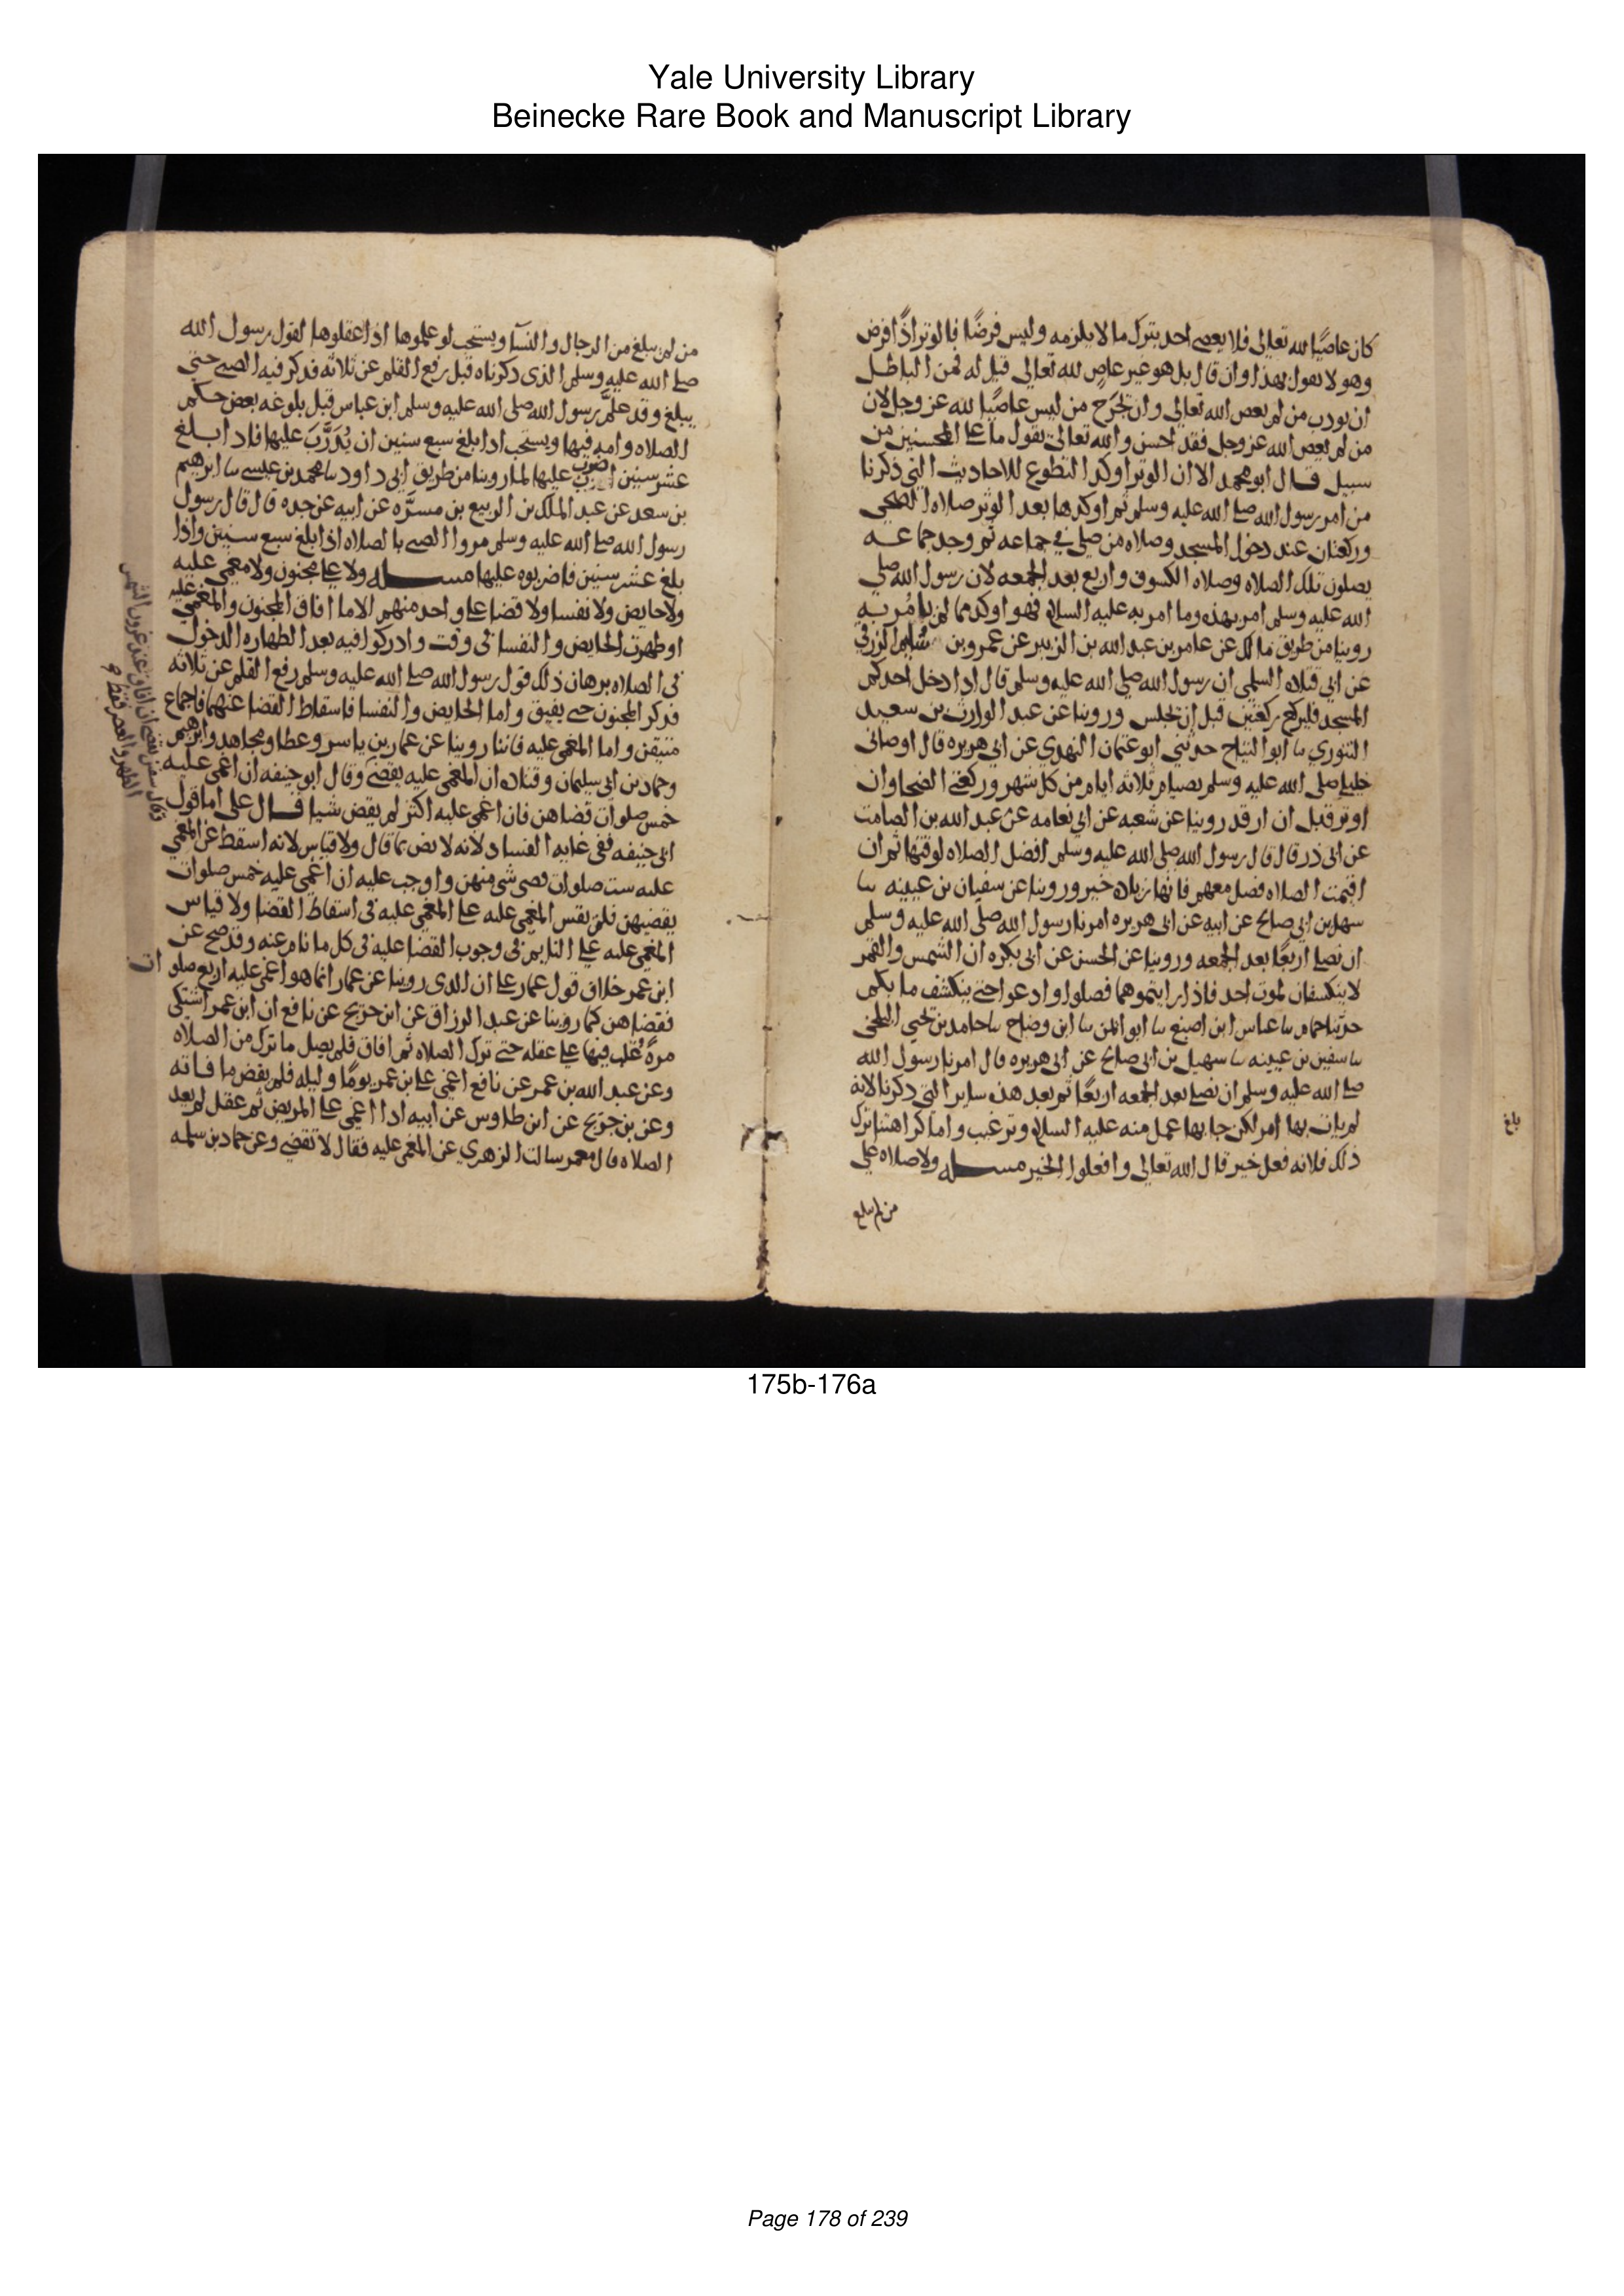 Yale University Library
Beinecke Rare Book and Manuscript Library
كان عاصيًا لله تعالى فلا يعصى احد بترك ما لا يلزمه وليس فرضًا فالوتر اذًا فرض
وهو لا يقول بهذا وان قال بل هو غير عاصٍ لله تعالى قيل له فمن الباطل
ان يودب من لم يعص الله تعالى وان تجرح من ليس عاصيًا لله عز وجل لان
من لم يعص الله عز وجل فقد احسن والله تعالى يقول ما على المحسنين من
سبيل قال ابو محمد الا ان الوتر اوكد التطوع للاحاديث التي ذكرنا
من امر رسول الله صلى الله عليه وسلم ثم اوكدها بعد الوتر صلاه الضحى
وركعتان عند دخول المسجد وصلاه من صلى في جماعه ثم وجد جماعه
يصلون تلك الصلاه وصلاه الكسوف واربع بعد الجمعه لان رسول الله صلى
الله عليه وسلم امر بهذه وما امر به عليه السلام فهو اوكد مما لم يامُر به
روينا من طريق مالك عن عامر بن عبد الله بن الزبير عن عمرو بن سليم الزرقي
عن ابي قتاده السلمي ان رسول الله صلى الله عليه وسلم قال اذا دخل احدكم
المسجد فليركع ركعتين قبل ان يجلس وروينا عن عبد الوارث بن سعيد
التنوري نا ابو التياح حدثني ابو عثمان النهدي عن ابي هريره قال اوصاني
خليلي صلى الله عليه وسلم بصيام ثلاثه ايام من كل شهر وركعتي الضحا وان
اوتر قبل ان ارقد روينا عن شعبه عن ابي نعامه عن عبد الله بن الصامت
عن ابي ذر قال قال رسول الله صلى الله عليه وسلم افضل الصلاه لوقتها ثم ان
اقيمت الصلاه فصل معهم فانها زياده خير وروينا عن سفيان بن عيينه نا
سهل بن ابي صالح عن ابيه عن ابي هريره امرنا رسول الله صلى الله عليه وسلم
ان نصلي اربعًا بعد الجمعه وروينا عن الحسن عن ابي بكره ان الشمس والقمر
لا ينكسفان لموت احد فاذا رايتموهما فصلوا وادعوا حتى ينكشف ما بكم
حدثنا حمام نا عباس ابن اصبغ نا ابن وضاح نا حامد بن يحيى البلخي
نا سفين بن عيينه نا سهيل بن ابي صالح عن ابي هريره قال امرنا رسول الله
صلى الله عليه وسلم ان نصلي بعد الجمعه اربعًا ثم بعد هذه ساير التي ذكرنا لانه
لم يات بها امر لكن جا بها عمل منه عليه السلام وترغيب واما كراهتنا ترك
ذلك فلانه فعل خير قال الله تعالى وافعلوا الخير مسله ولا صلاه على
من لم يبلغ
بلغ
من لم يبلغ من الرجال والنسا ويستحب لو علموها اذا عقلوها لقول رسول الله
صلى الله عليه وسلم الذي ذكرناه قبل رفع القلم عن ثلاثه فذكر فيه الصبي حتى
يبلغ وقد علَّم رسول الله صلى الله عليه وسلم ابن عباس قبل بلوغه بعض حكم
الصلاه وامه فيها ويستحب اذا بلغ سبع سنين ان يُدَرَّبَ عليها فاذا بلغ
عشر سنين ضرب عليها لما روينا من طريق ابي داود نا محمد بن عيسى نا ابرهيم
بن سعد عن عبد الملك بن الربيع بن مسبَره عن ابيه عن جده قال قال رسول
رسول الله صلى الله عليه وسلم مروا الصبي بالصلاه اذا بلغ سبع سنين واذا
بلغ عشر سنين فاضربوه عليها مسله ولا على مجنون ولا مغمى عليه
ولا حايض ولا نفسا ولا قضا على واحد منهم الا ما افاق المجنون والمغمى عليه
او طهرت الحايض والنفسا في وقت وادركوا فيه بعد الطهاره الدخول
في الصلاه برهان ذلك قول رسول الله صلى الله عليه وسلم رفع القلم عن ثلاثه
فذكر المجنون حتى يفيق واما الحايض والنفسا فاسقاط القضا عنهما فاجماع
متيقن واما المغمى عليه فاننا روينا عن عمار بن ياسر وعطا ومجاهد وابرهيم
وحماد بن ابي سليمان وقتاده ان المغمى عليه يقضي وقال ابو حنيفه ان اغمي عليه
خمس صلوات قضاهن فان اغمي عليه اكثر لم يقض شيا قال علي اما قول
ابي حنيفه ففي غايه الفساد لانه لا نص بما قال ولا قياس لانه اسقط عن المغمى
عليه ست صلوات قضى شي منهن واوجب عليه ان اغمي عليه خمس صلوات
يقضيهن فلم يقس المغمى عليه على المغمى عليه في اسقاط القضا ولا قياس
المغمى عليه على النايم في وجوب القضا عليه في كل ما نام عنه وقد صح عن
ابن عمر خلاف قول عمار على ان الذي روينا عن عمار انما هو اغمي عليه اربع صلوات
فقضاهن كما روينا عن عبد الرزاق عن ابن جريج عن نافع ان ابن عمر اشتكى
مرةً غُلب فيها على عقله حتى ترك الصلاه ثم افاق فلم يصل ما ترك من الصلاه
وعن عبد الله بن عمر عن نافع اغمي على ابن عمر يومًا وليله فلم يقض ما فاته
وعن بن جريج عن ابن طاوس عن ابيه اذا اغمي على المريض ثم عقل لم يعد
الصلاه قال معمر سالت الزهري عن المغمى عليه فقال لا تقضي وعن حماد بن سلمه
وقال سفين يقضي ان افاق عند غروب الشمس
الظهر والعصر فقط
175b-176a
Page 178 of 239